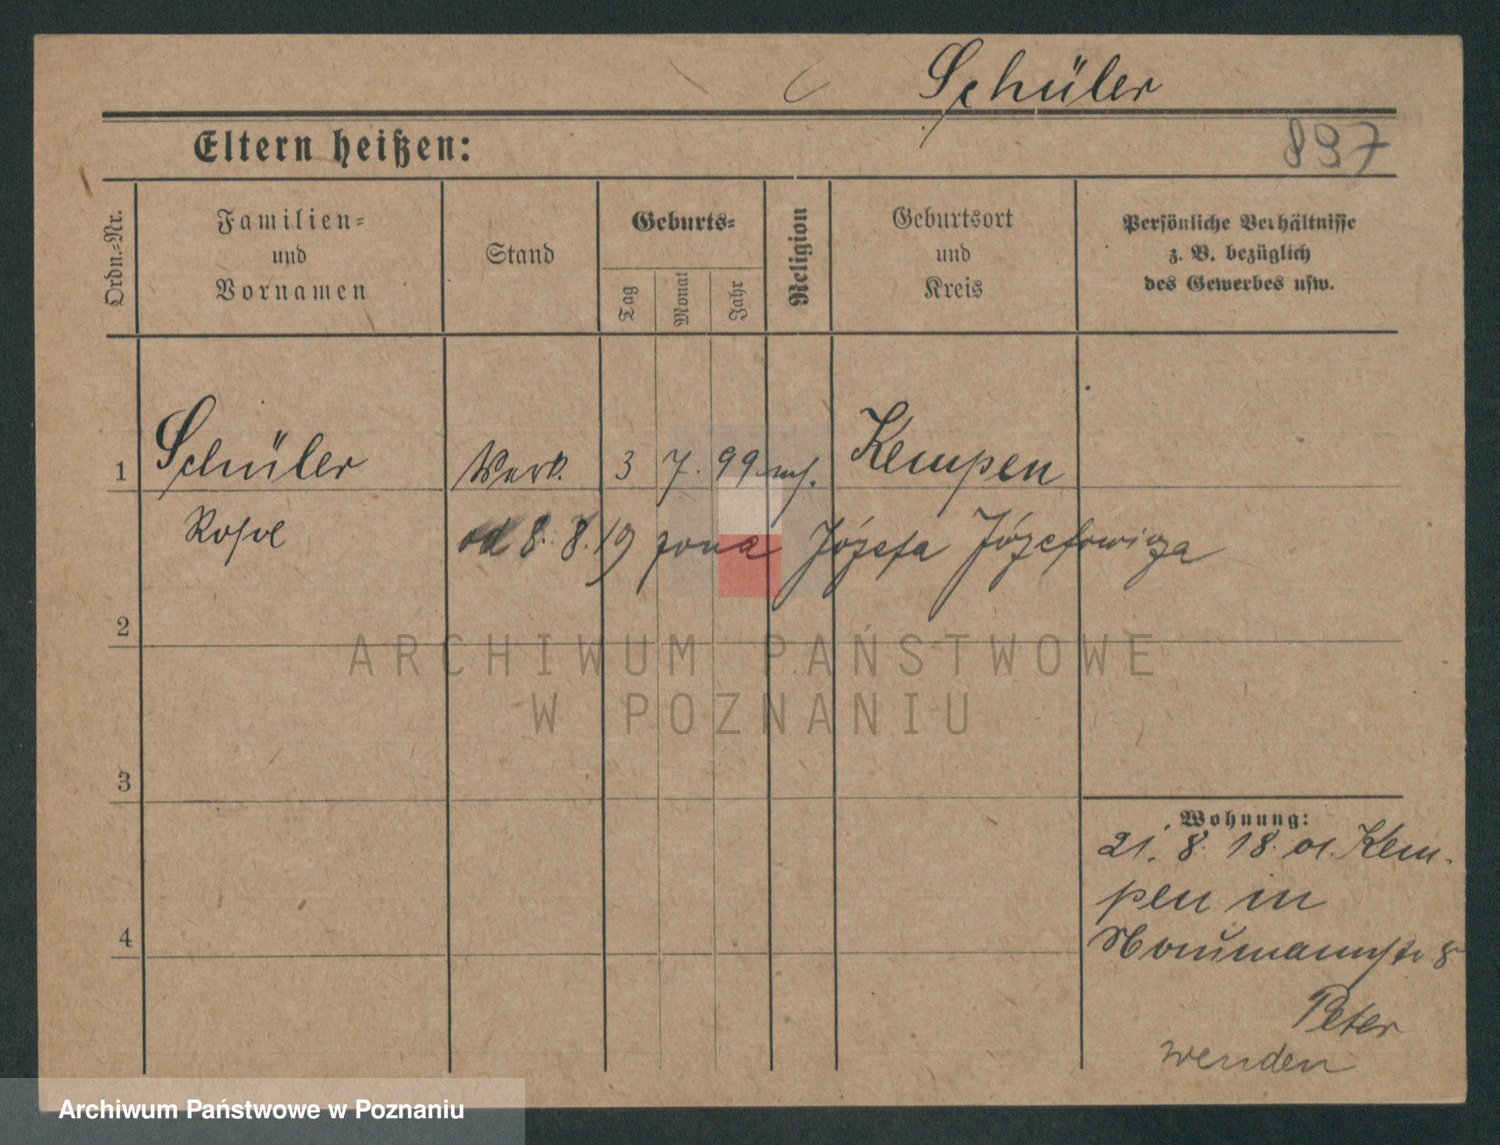 Schüler
Eltern heißen:
897
Ordn.-Nr.
Familien-
und
Vornamen
Stand
Geburts-
Tag
Monat
Jahr
Religion
Geburtsort
und
Kreis
Persönliche Verhältnisse
z. B. bezüglich
des Gewerbes usw.
1 Schüler 3 7. 99 Kempen
od 8. 8. 19 żona Józefa Józefowicza
2
ARCHIWUM PAŃSTWOWE
W POZNANIU
3
Wohnung:
21. 8. 18 Kem-
pen in
8
4
Peter
wenden
Archiwum Państwowe w Poznaniu